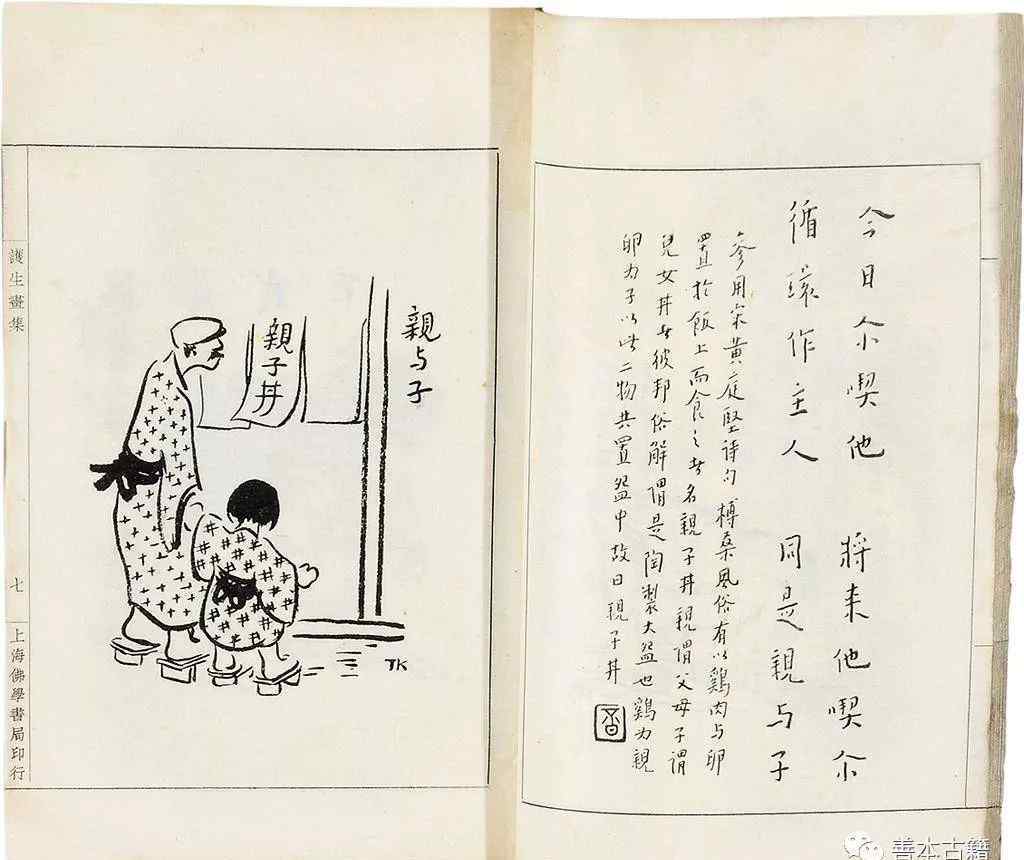 今日尒喫他 將来他喫尒
循環作主人 同是親与子
參用宋黄庭堅诗句 榑桑風俗有以鷄肉与卵
置於飯上而食之者名親子丼親谓父母子谓
兒女丼者彼邦俗解谓是陶製大盌也鷄为親
卵为子以此二物共置盌中故曰親子丼
親与子
親子丼
TK
護生畫集
七
上海佛學書局印行
善本古籍